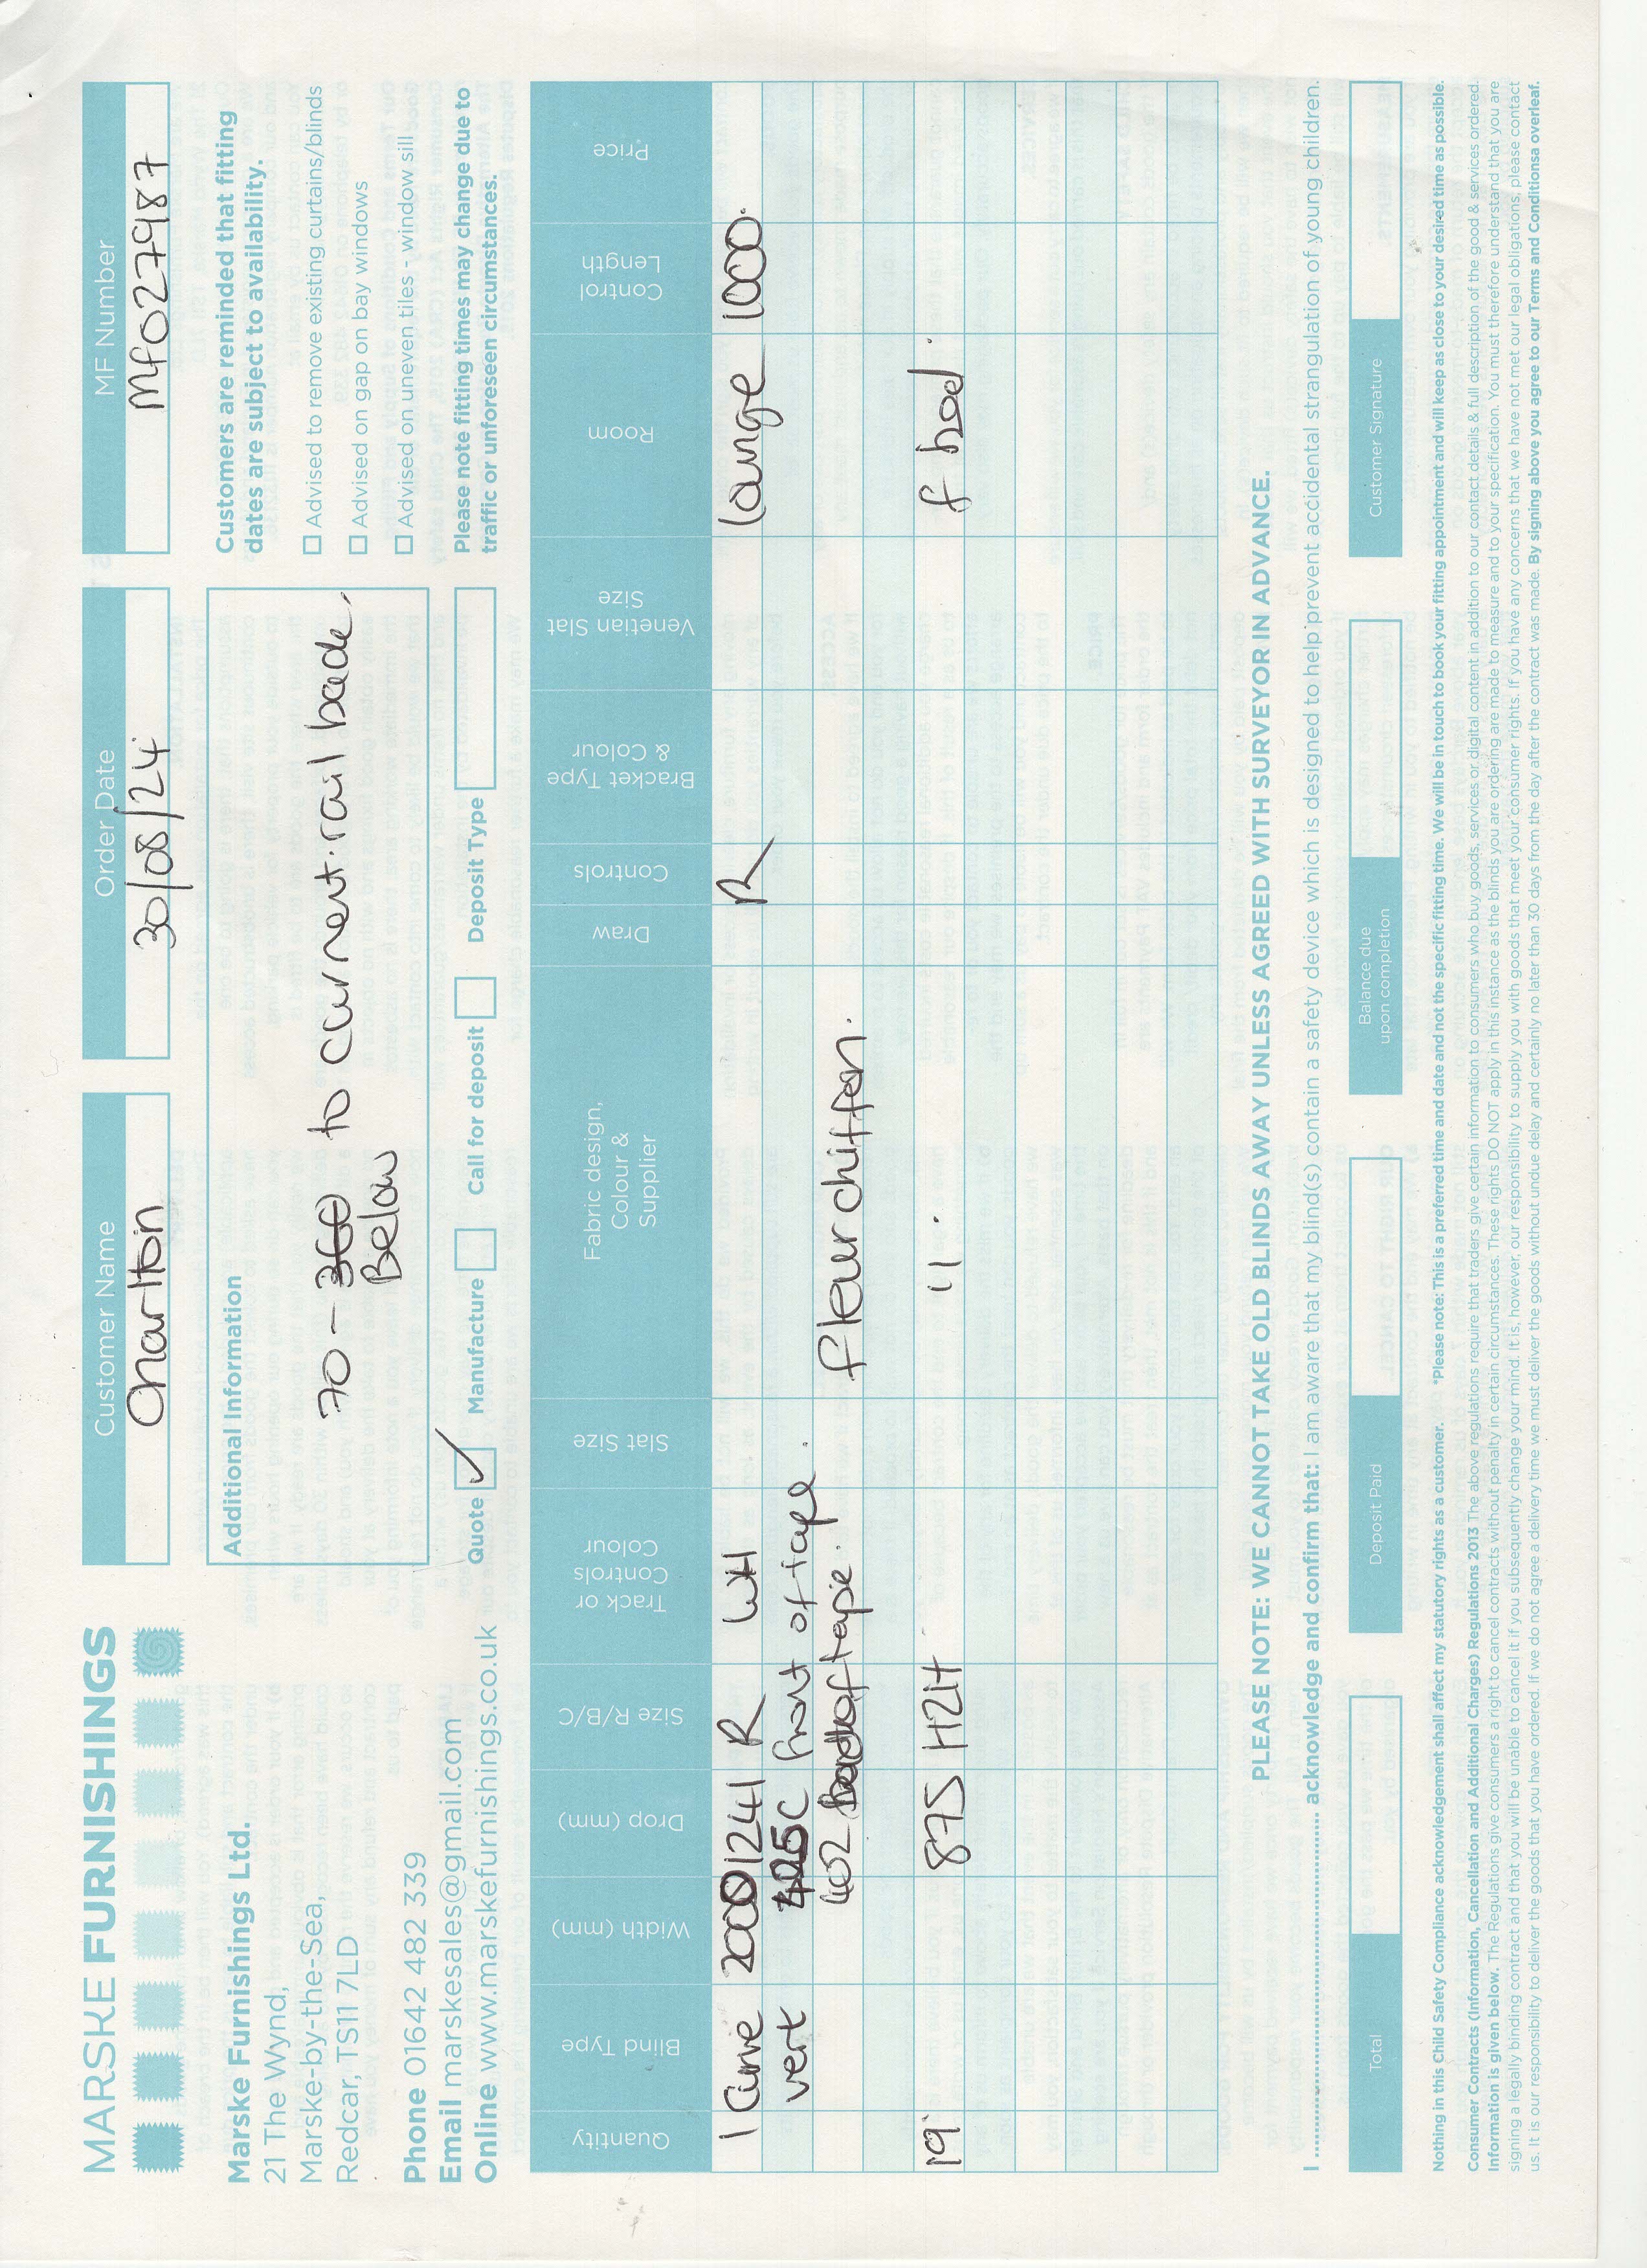 MARSKE FURNISHINGS
Marske Furnishings Ltd.
21 The Wynd,
Marske-by-the-Sea,
Redcar, TS11 7LD
Phone 01642 482 339
Email marskesales@gmail.com
Online www.marskefurnishings.co.uk
Customer Name
Charlton
Order Date
30/08/24
MF Number
Mf027987
Additional Information
70 - 360 to current rail bade.
Below
Quote ✓ Manufacture Call for deposit Deposit Type
Customers are reminded that fitting
dates are subject to availability.
Advised to remove existing curtains/blinds
Advised on gap on bay windows
Advised on uneven tiles - window sill
Please note fitting times may change due to
traffic or unforeseen circumstances.
Quantity Blind Type Width (mm) Drop (mm) Size R/B/C Track or Controls Colour Slat Size Fabric design, Colour & Supplier Draw Controls Bracket Type & Colour Venetian Slat Size Room Control Length Price
1 Curve 2000 1241 R WH R lounge 1000.
vert 425C front of tape
402 of tape. fleur chiffon.
19 875 H2H 11. f bed.
PLEASE NOTE: WE CANNOT TAKE OLD BLINDS AWAY UNLESS AGREED WITH SURVEYOR IN ADVANCE.
I .......................................................... acknowledge and confirm that: I am aware that my blind(s) contain a safety device which is designed to help prevent accidental strangulation of young children.
Total
Deposit Paid
Balance due
upon completion
Customer Signature
Nothing in this Child Safety Compliance acknowledgement shall affect my statutory rights as a customer. *Please note: This is a preferred time and date and not the specific fitting time. We will be in touch to book your fitting appointment and will keep as close to your desired time as possible.
Consumer Contracts (Information, Cancellation and Additional Charges) Regulations 2013 The above regulations require that traders give certain information to consumers who buy goods, services or digital content in addition to our contact details & full description of the good & services ordered.
Information is given below. The Regulations give consumers a right to cancel contracts without penalty in certain circumstances. These rights DO NOT apply in this instance as the blinds you are ordering are made to measure and to your specification. You must therefore understand that you are
signing a legally binding contract and that you will be unable to cancel it if you subsequently change your mind. It is, however, our responsibility to supply you with goods that meet your consumer rights. If you have any concerns that we have not met our legal obligations, please contact
us. It is our responsibility to deliver the goods that you have ordered. If we do not agree a delivery time we must deliver the goods without undue delay and certainly no later than 30 days from the day after the contract was made. By signing above you agree to our Terms and Conditionsa overleaf.